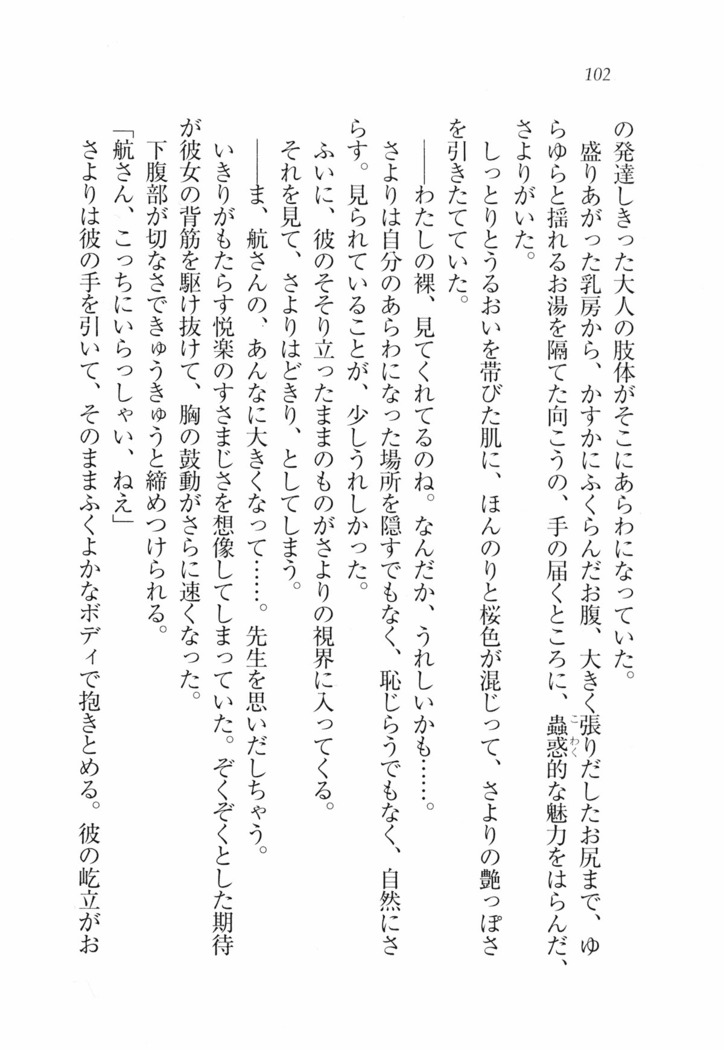 102
の発達しきった大人の肢体がそこにあらわになっていた。
盛りあがった乳房から、かすかにふくらんだお腹、大きく張りだしたお尻まで、ゆ
らゆらと揺れるお湯を隔てた向こうの、手の届くところに、蠱惑的な魅力をはらんだ、
こわく
さよりがいた。
しっとりとうるおいを帯びた肌に、ほんのりと桜色が混じって、さよりの艶っぽさ
を引きたてていた。
――わたしの裸、見てくれてるのね。なんだか、うれしいかも……。
さよりは自分のあらわになった場所を隠すでもなく、恥じらうでもなく、自然にさ
らす。見られていることが、少しうれしかった。
ふいに、彼のそそり立ったままのものがさよりの視界に入ってくる。
それを見て、さよりはどきり、としてしまう。
――ま、航さんの、あんなに大きくなって……。先生を思いだしちゃう。
いきりがもたらす悦楽のすさまじさを想像してしまっていた。ぞくぞくとした期待
が彼女の背筋を駆け抜けて、胸の鼓動がさらに速くなった。
下腹部が切なさできゅうきゅうと締めつけられる。
「航さん、こっちにいらっしゃい、ねえ」
さよりは彼の手を引いて、そのままふくよかなボディで抱きとめる。彼の屹立がお